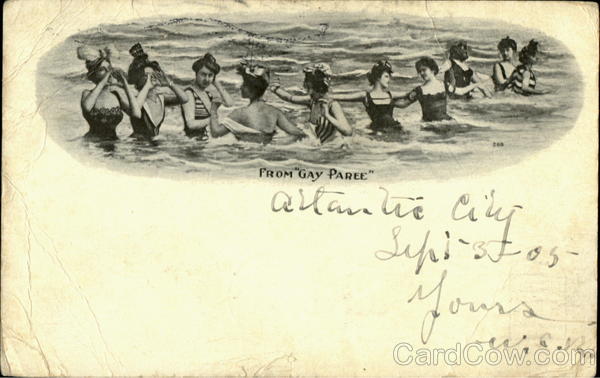 FROM "GAY PAREE"
Atlantic City
Sept 3-05
Yours
CardCow.com